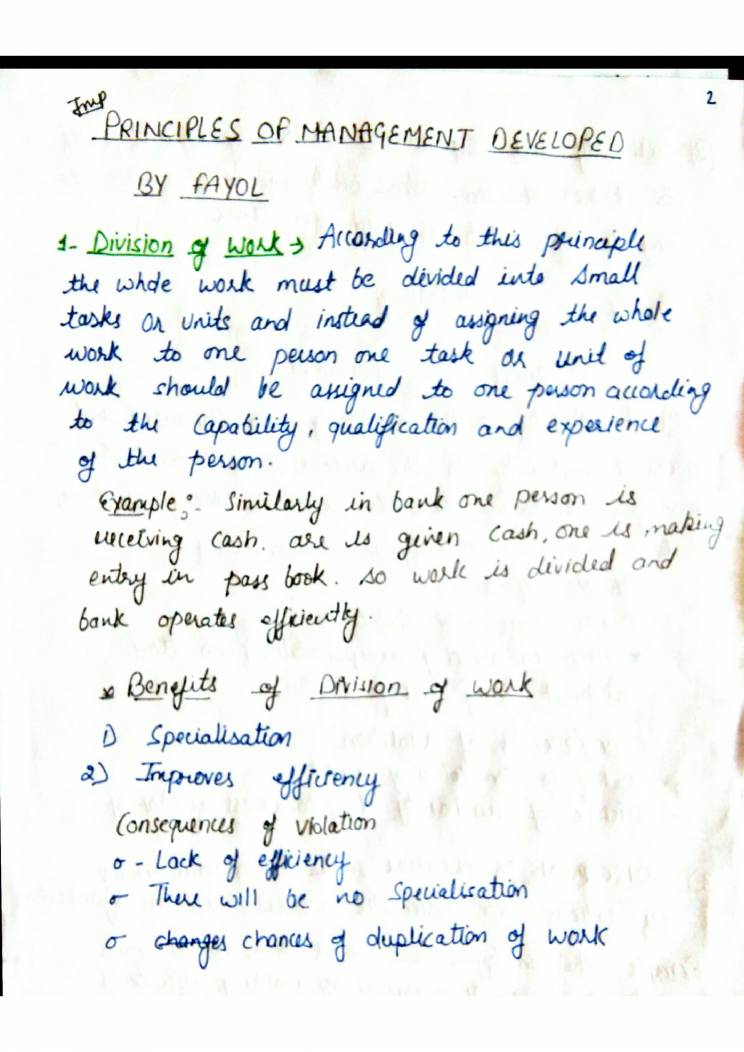 Imp
2
PRINCIPLES OF MANAGEMENT DEVELOPED
BY FAYOL
1- Division of Work → According to this principle
the whole work must be divided into small
tasks or units and instead of assigning the whole
work to one person one task or unit of
work should be assigned to one person according
to the capability, qualification and experience
of the person.
Example:- Similarly in bank one person is
receiving cash. are is given cash, one is making
entry in pass book. so work is divided and
bank operates efficiently.
* Benefits of Division of work
1) Specialisation
2) Improves efficiency
Consequences of violation
- Lack of efficiency
There will be no specialisation
changes chances of duplication of work